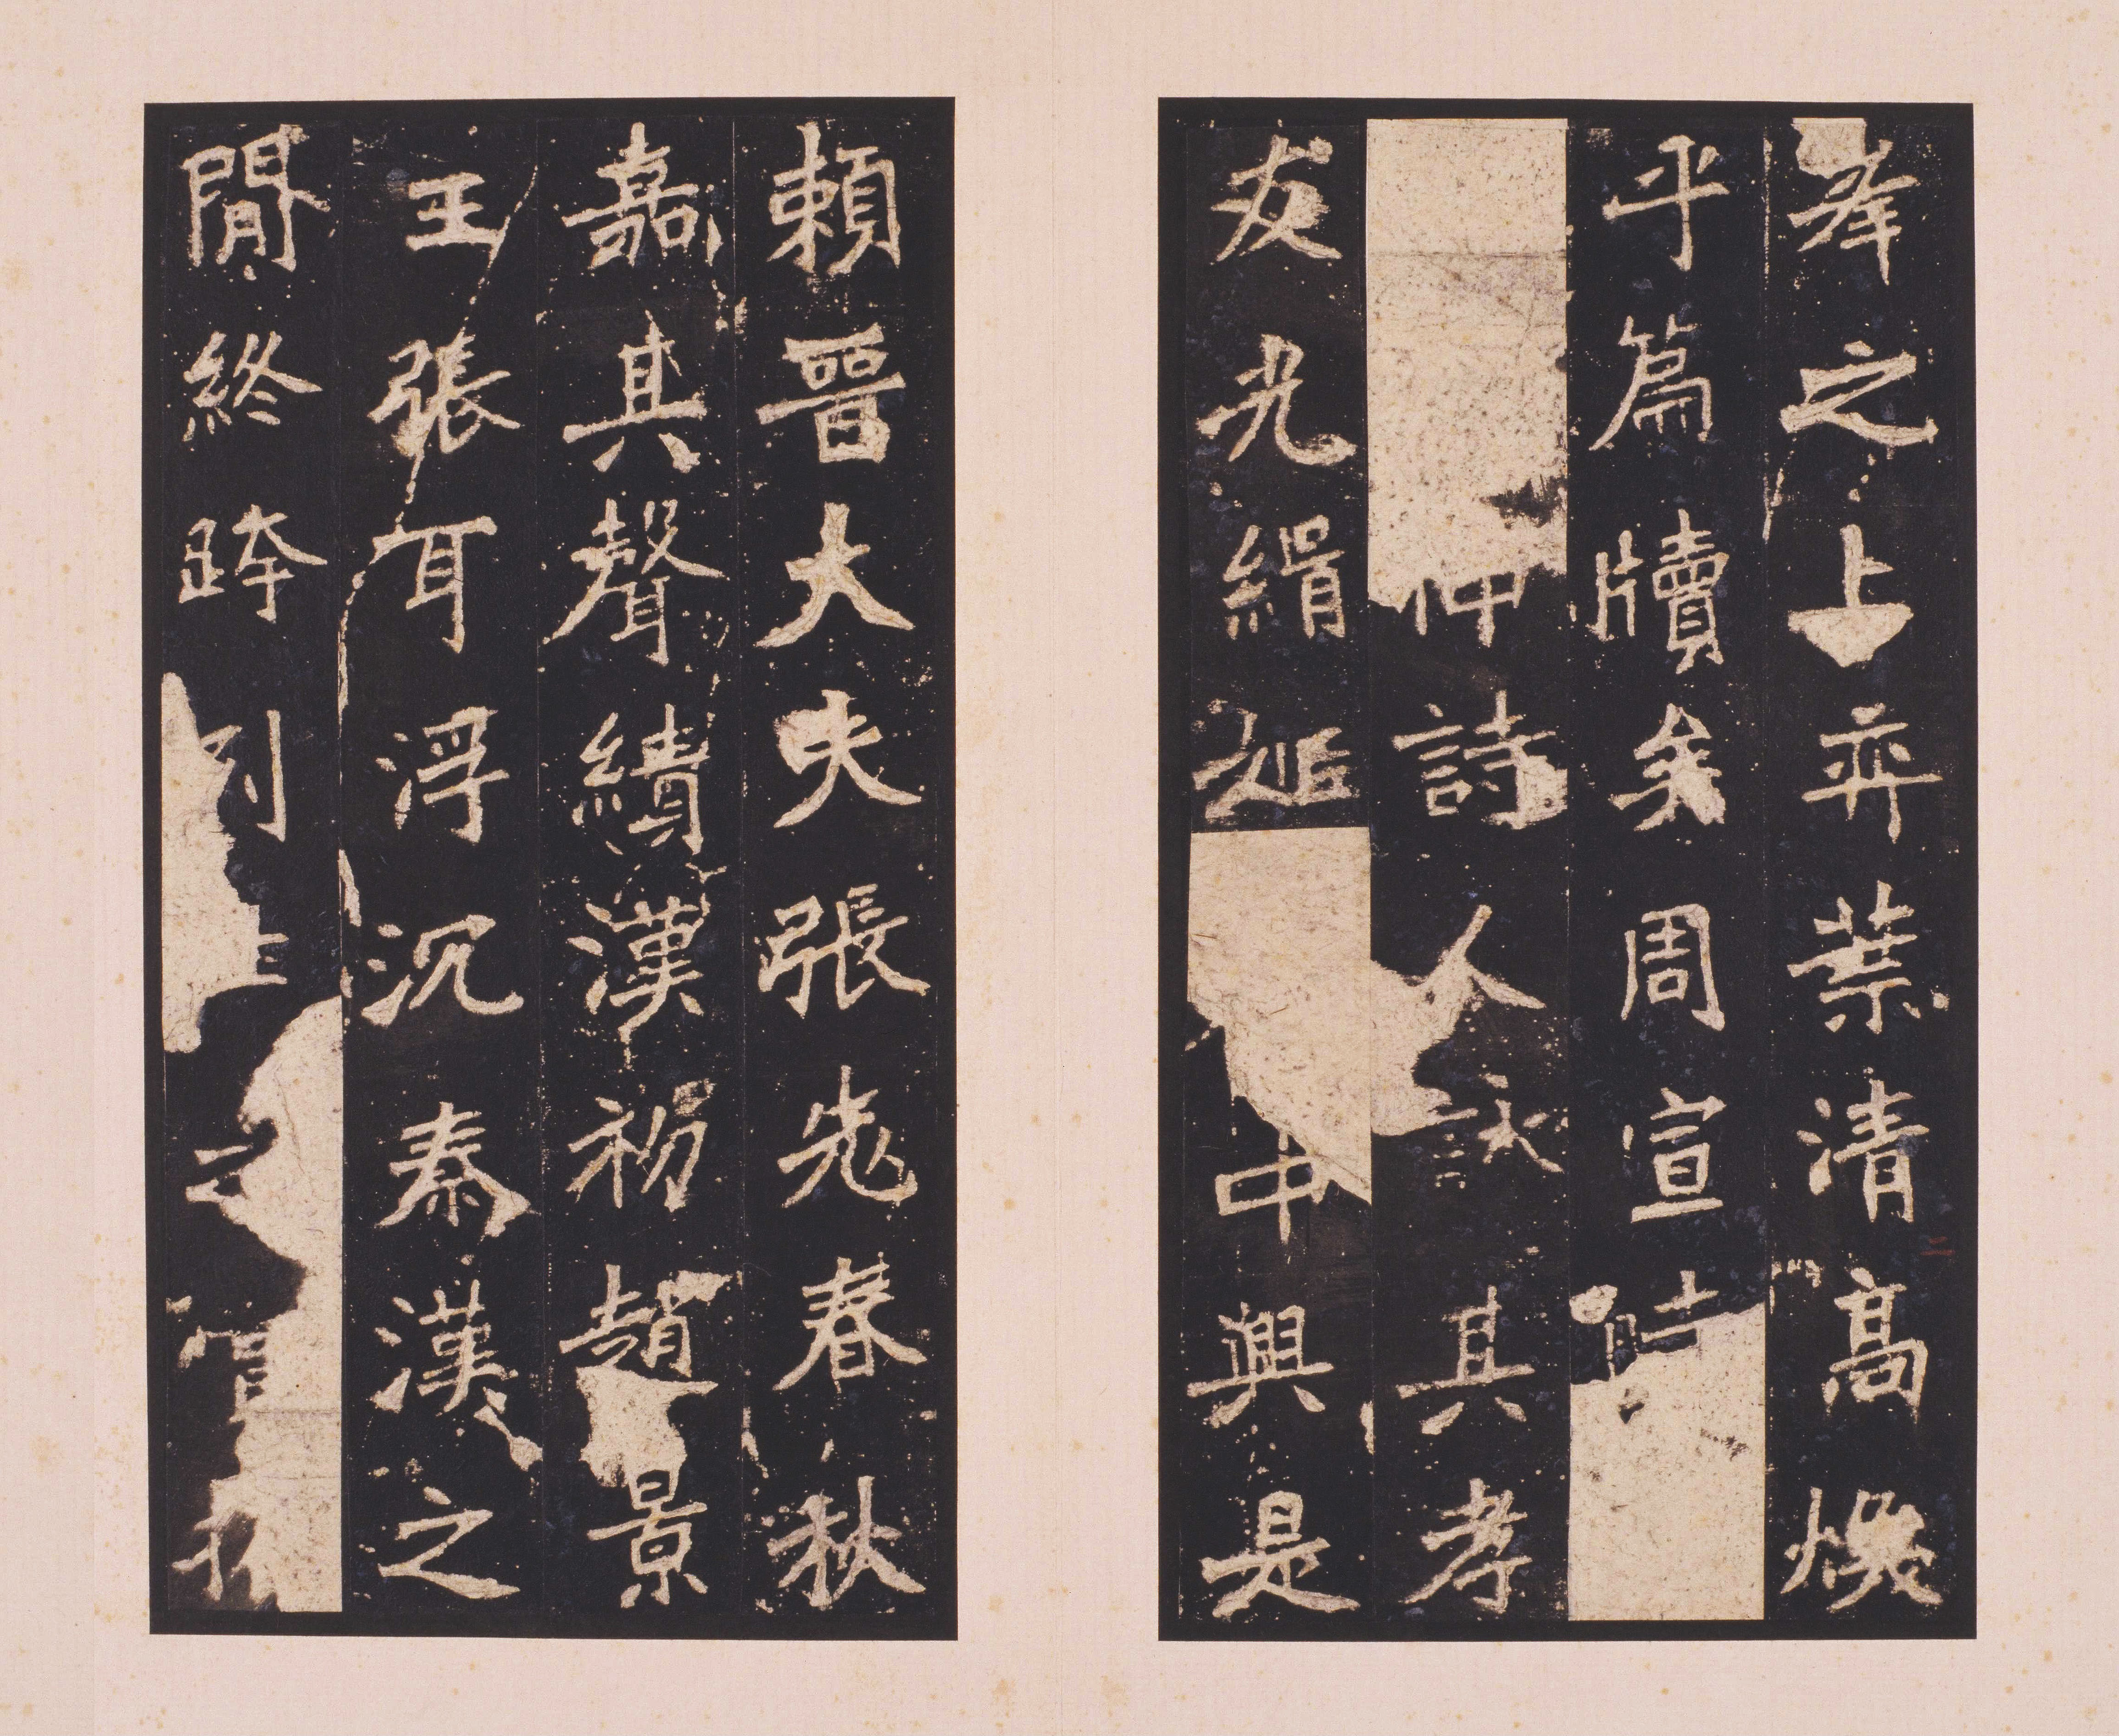 峯之上弈葉清高煥
乎篇牘矣周宣時
仲詩人詠其孝
友光緝姬中興是
賴晉大夫張老春秋
嘉其聲績漢初趙景
王張耳浮沉秦漢之
閒終跨列土之賞